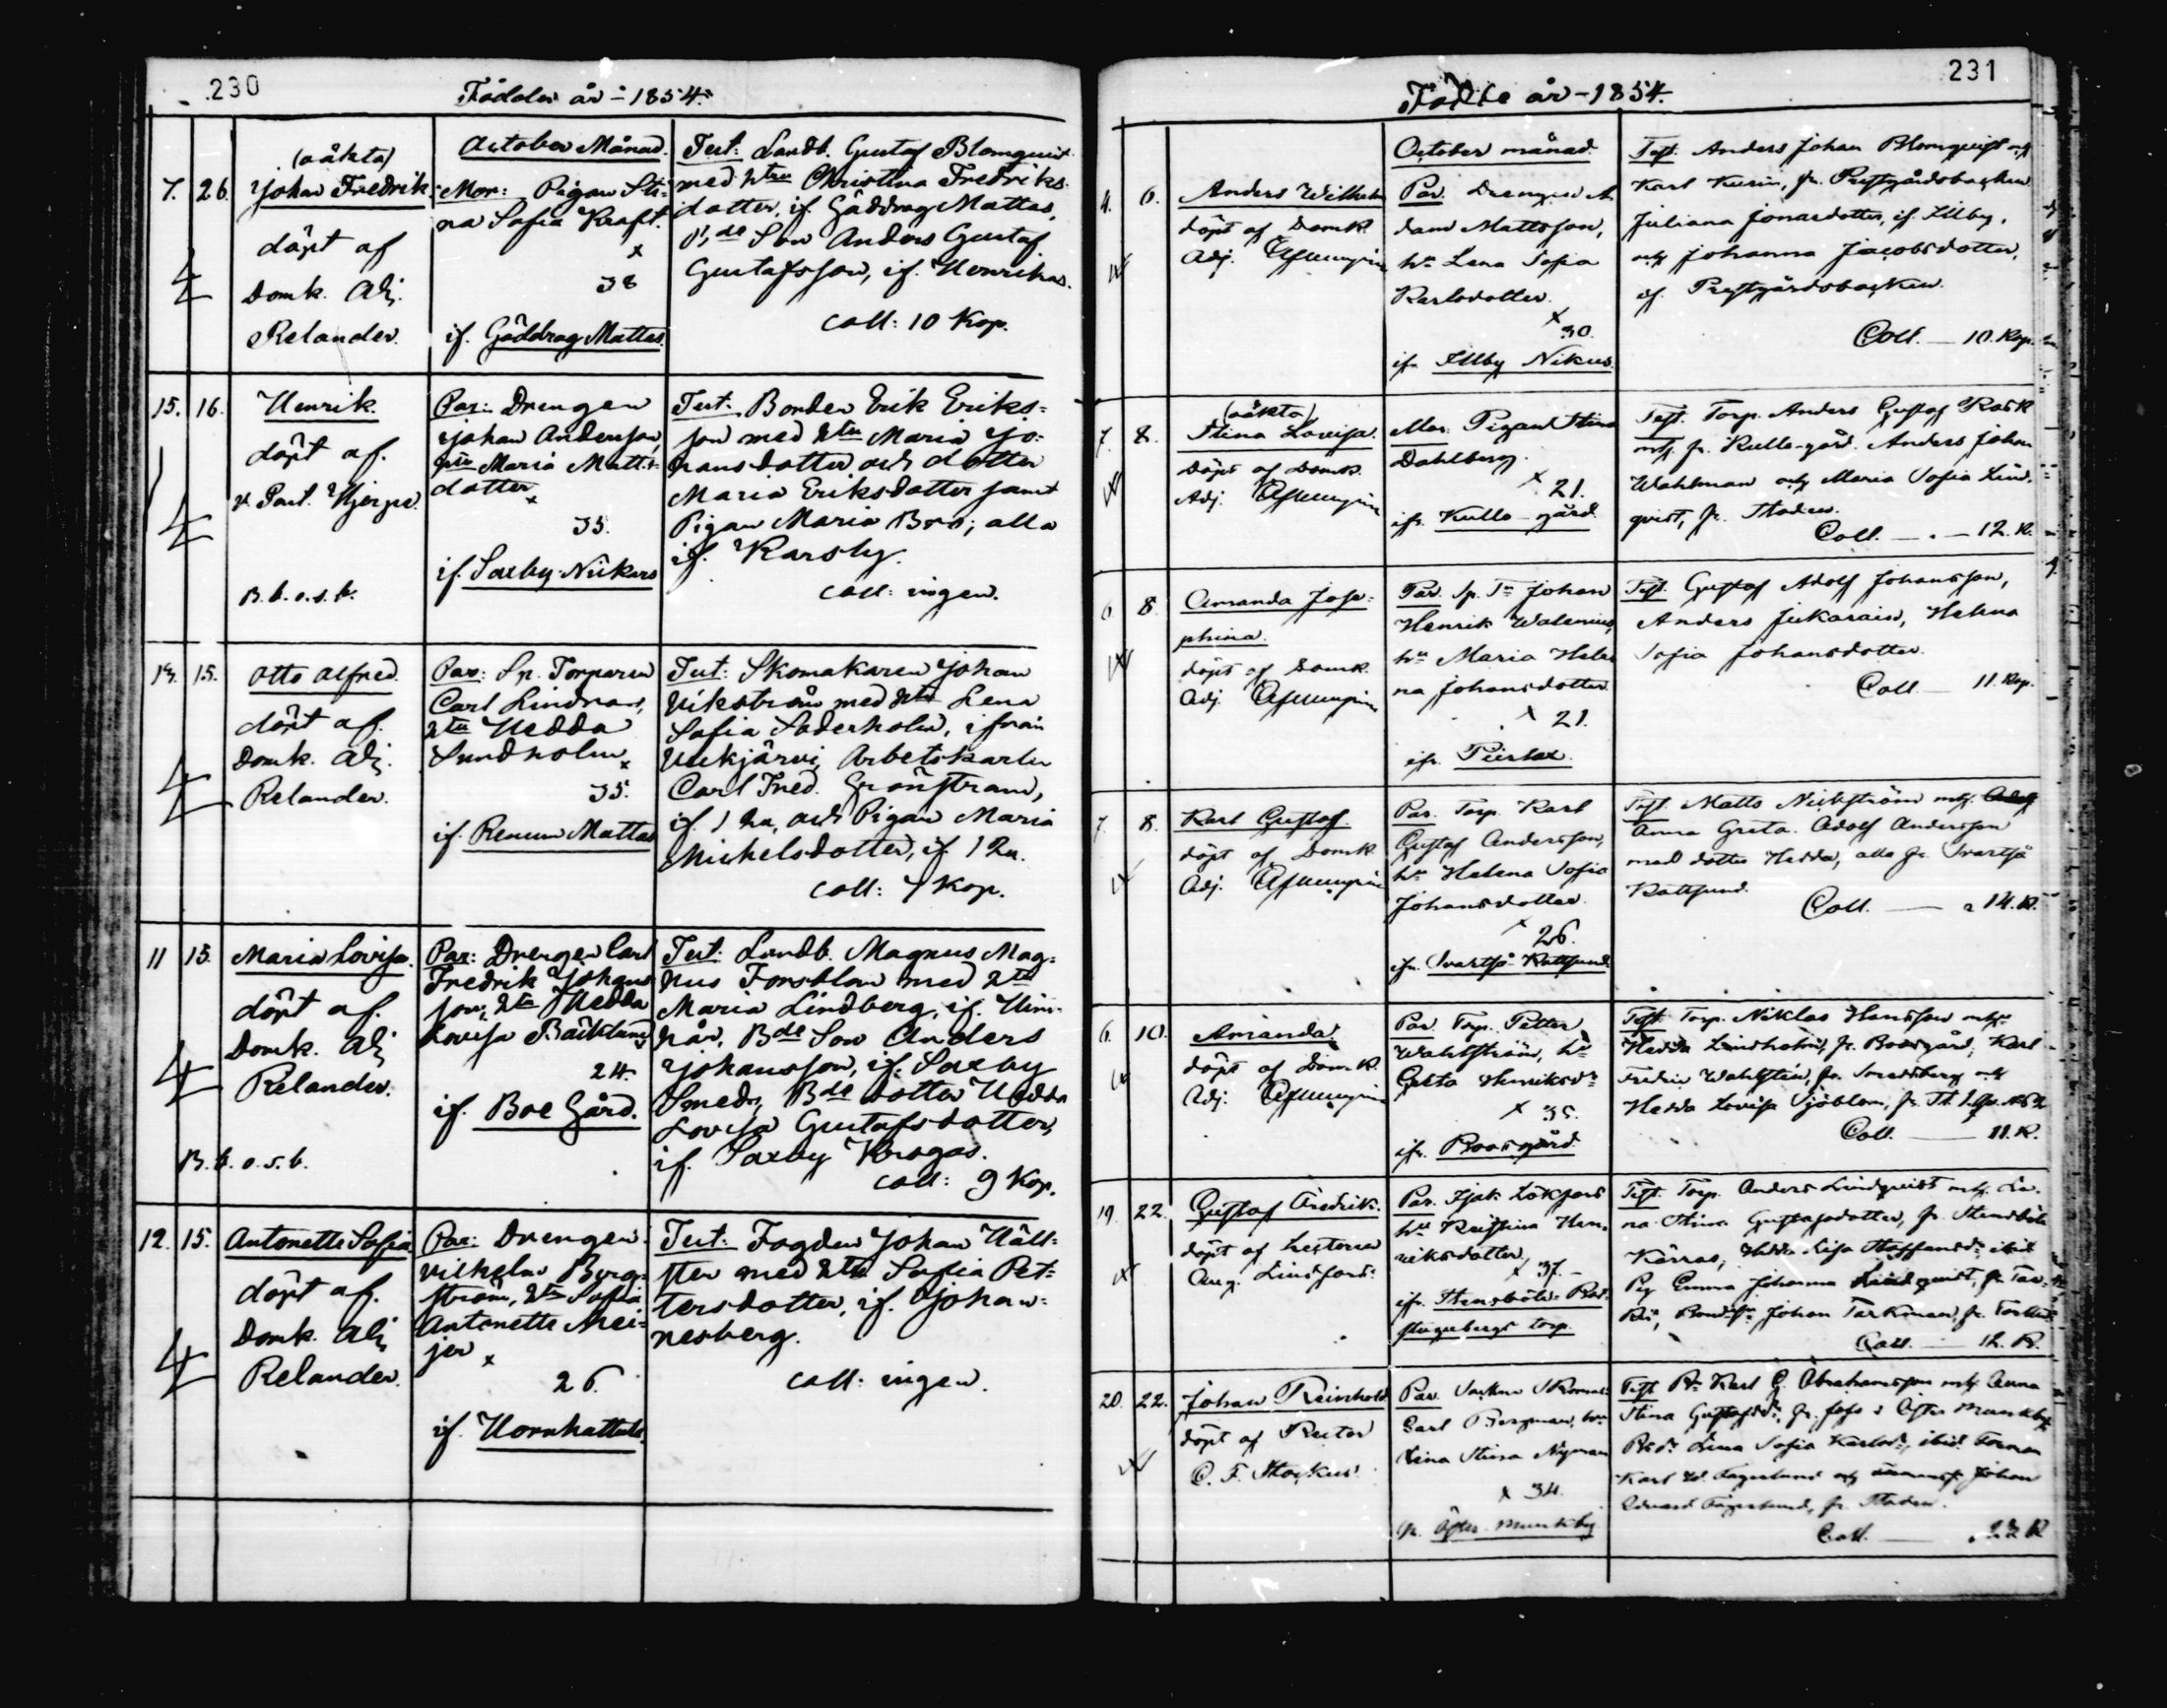 230
Födde år 1854.
October Månad.
7. 26.
(oäkta)
Johan Fredrik.
döpt af
Domk. Adj.
Relander.
Mor: Pigan Sti-
na Sofia Kraft.
x
38
if. Gäddrag Mattas.
Test: Landb. Gustaf Blomquist
med hu Christina Fredriks-
dotter, if. Gäddrag Mattas,
Son Anders Gustaf
Gustafsson, if. Henrikas.
Coll: 10 Kop.
15. 16.
Henrik.
döpt af.
v. Past. Hjerpe.
B.b.o.s.b.
Par: Drengen
Johan Andersson,
hu Maria Matts-
dotter
x
35.
if. Saxby Nikars
Test: Bonden Erik Eriks-
son med hu Maria Jo-
hansdotter och dotter
Maria Eriksdotter samt
Pigan Maria Bro; alla
if. Karsby.
Coll: ingen.
14. 15.
Otto Alfred.
döpt af.
Domk. Adj.
Relander.
Par: Sp. Torparen
Carl Lindroos,
hu Hedda
Sundholm
x
35.
if. Renum Mattas
Test: Skomakaren Johan
Vikström med hu Lena
Sofia Söderholm, ifrån
Veckjärvi, Arbetskarlen
Carl Fred. Grönstrand,
if. 1 Qu, och Pigan Maria
Michelsdotter, if. 1 Qu.
Coll: 7 Kop.
11 15.
Maria Lovisa.
döpt af.
Domk. Adj
Relander.
B.b.o.s.b.
Par: Drengen Carl
Fredrik Johans-
son, hu Hedda
Lovisa Bäcklund
x
24.
if. Boe Gård.
Test: Landb. Magnus Mag-
nus Forsblom med hu
Maria Lindberg, if.
Bde Son Anders
Johansson, if. Saxby
Smeds, Bde dotter Hedda
Lovisa Gustafsdotter,
if. Saxby Krogas.
Coll: 9 Kop.
12. 15.
Antonette Sofia.
döpt af.
Domk. Adj
Relander.
Par: Drengen
Vilhelm Berg-
ström, hu Sofia
Antonette Mei-
jer
x
26.
if. Hornhattula.
Test: Fogden Johan Häll-
sten med hu Sofia Pet-
tersdotter, if. Johan-
nesberg.
Coll: ingen.
231
Födde år 1854.
October månad.
4. 6.
Anders Wilhelm
döpt af Domk.
Adj.
Par. Drengen A-
dam Mattsson,
hu Lena Sofia
Karlsdotter.
x
30.
ifr. Illby Nikus.
Test. Anders Johan Blomqvist och
Karl Kurin, fr. Prestgårdsbacken
Juliana Jonasdotter, if. Illby,
och Johanna Jacobsdotter,
if. Prestgårdsbacken.
Coll. — 10. Kop.
7. 8.
(oäkta)
Stina Lovisa.
Döpt af Domk.
Adj.
Mor. Pigan Stina
Dahlberg.
x 21.
ifr. Kullo-gård.
Test. Torp. Anders Gustaf Rask
och fr. Kullo-gård. Anders Johan
Wahlman och Maria Sofia Lind-
qvist, fr. Staden.
Coll. — 12. K.
6. 8.
Amanda Jose-
phina.
döpt af Domk.
Adj.
Par. Sp. Tn Johan
Henrik Walenius,
hu Maria Hele-
na Johansdotter.
x 21.
ifr. Peirlax.
Test. Gustaf Adolf Johansson,
Anders Jukarain, Helena
Sofia Johansdotter.
Coll. — 11. Kop.
7. 8.
Karl Gustaf.
döpt af Domk
Adj.
Par. Torp. Karl
Gustaf Andersson,
hu Helena Sofia
Johansdotter.
x 26.
ifr. Svartså Kattsund
Test. Matts Nickström och
Anna Greta. Adolf Andersson
med dotter Hedda, alla fr. Svartså
Kattsund.
Coll. — 14. K.
6. 10.
Amanda.
döpt af Domk.
Adj.
Par. Torp. Petter
Wahlström, hu
Greta Henriksdr
x 35.
ifr. Boxsgård.
Test. Torp. Niklas Hansson och
Hedda Lindholm, fr. Boxsgård; Karl
Fredric Wahlstén, fr. och
Hedda Lovisa Sjöblom, fr.
Coll. — 11. K.
19. 22.
Gustaf Fredrik.
döpt af
Aug. Lindfors.
Par.
hu Kristina Hen-
riksdotter,
x 37.
ifr. Stensböle
torp.
Test. Torp. Anders Lindqvist och Le-
na Stina Gustafsdotter, fr. Stensböle
Kärras, Hedda Lisa Staffansdr ibid
Pig. Emma Johanna Lindqvist,
Johan Tarkman, fr.
Coll. — 12. K.
20. 22.
Johan Reinhold
döpt af Rector
C. F. Stockus.
Par.
Carl Bergman, hu
Lina Stina Nyman
x 34.
fr. Öfter-Munkby
Test. Karl G. Abrahamsson och Anna
Stina Gustafsdr, fr. Öfter Munkby
Lena Sofia Karlsdr, ibid.
Karl W. Fagerlund och Johan
Edvard Fagerlund, fr. Staden.
Coll. — 22 K